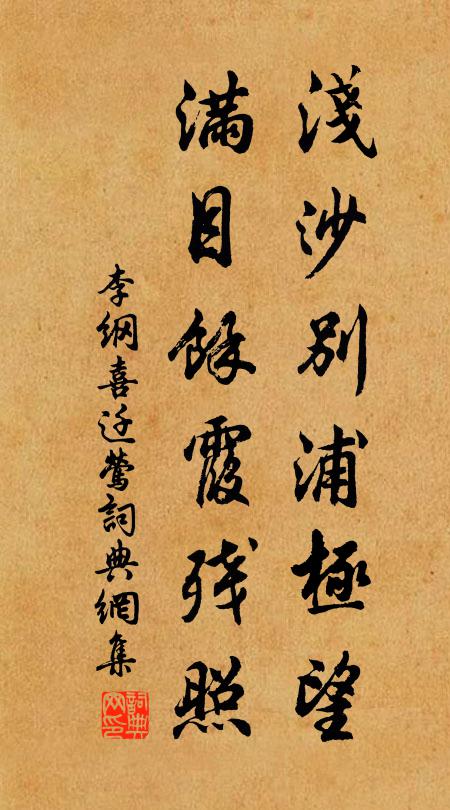 淺沙別浦極望
滿目餘霞残照
李綱喜迁鶯詞典網集
詞典網印